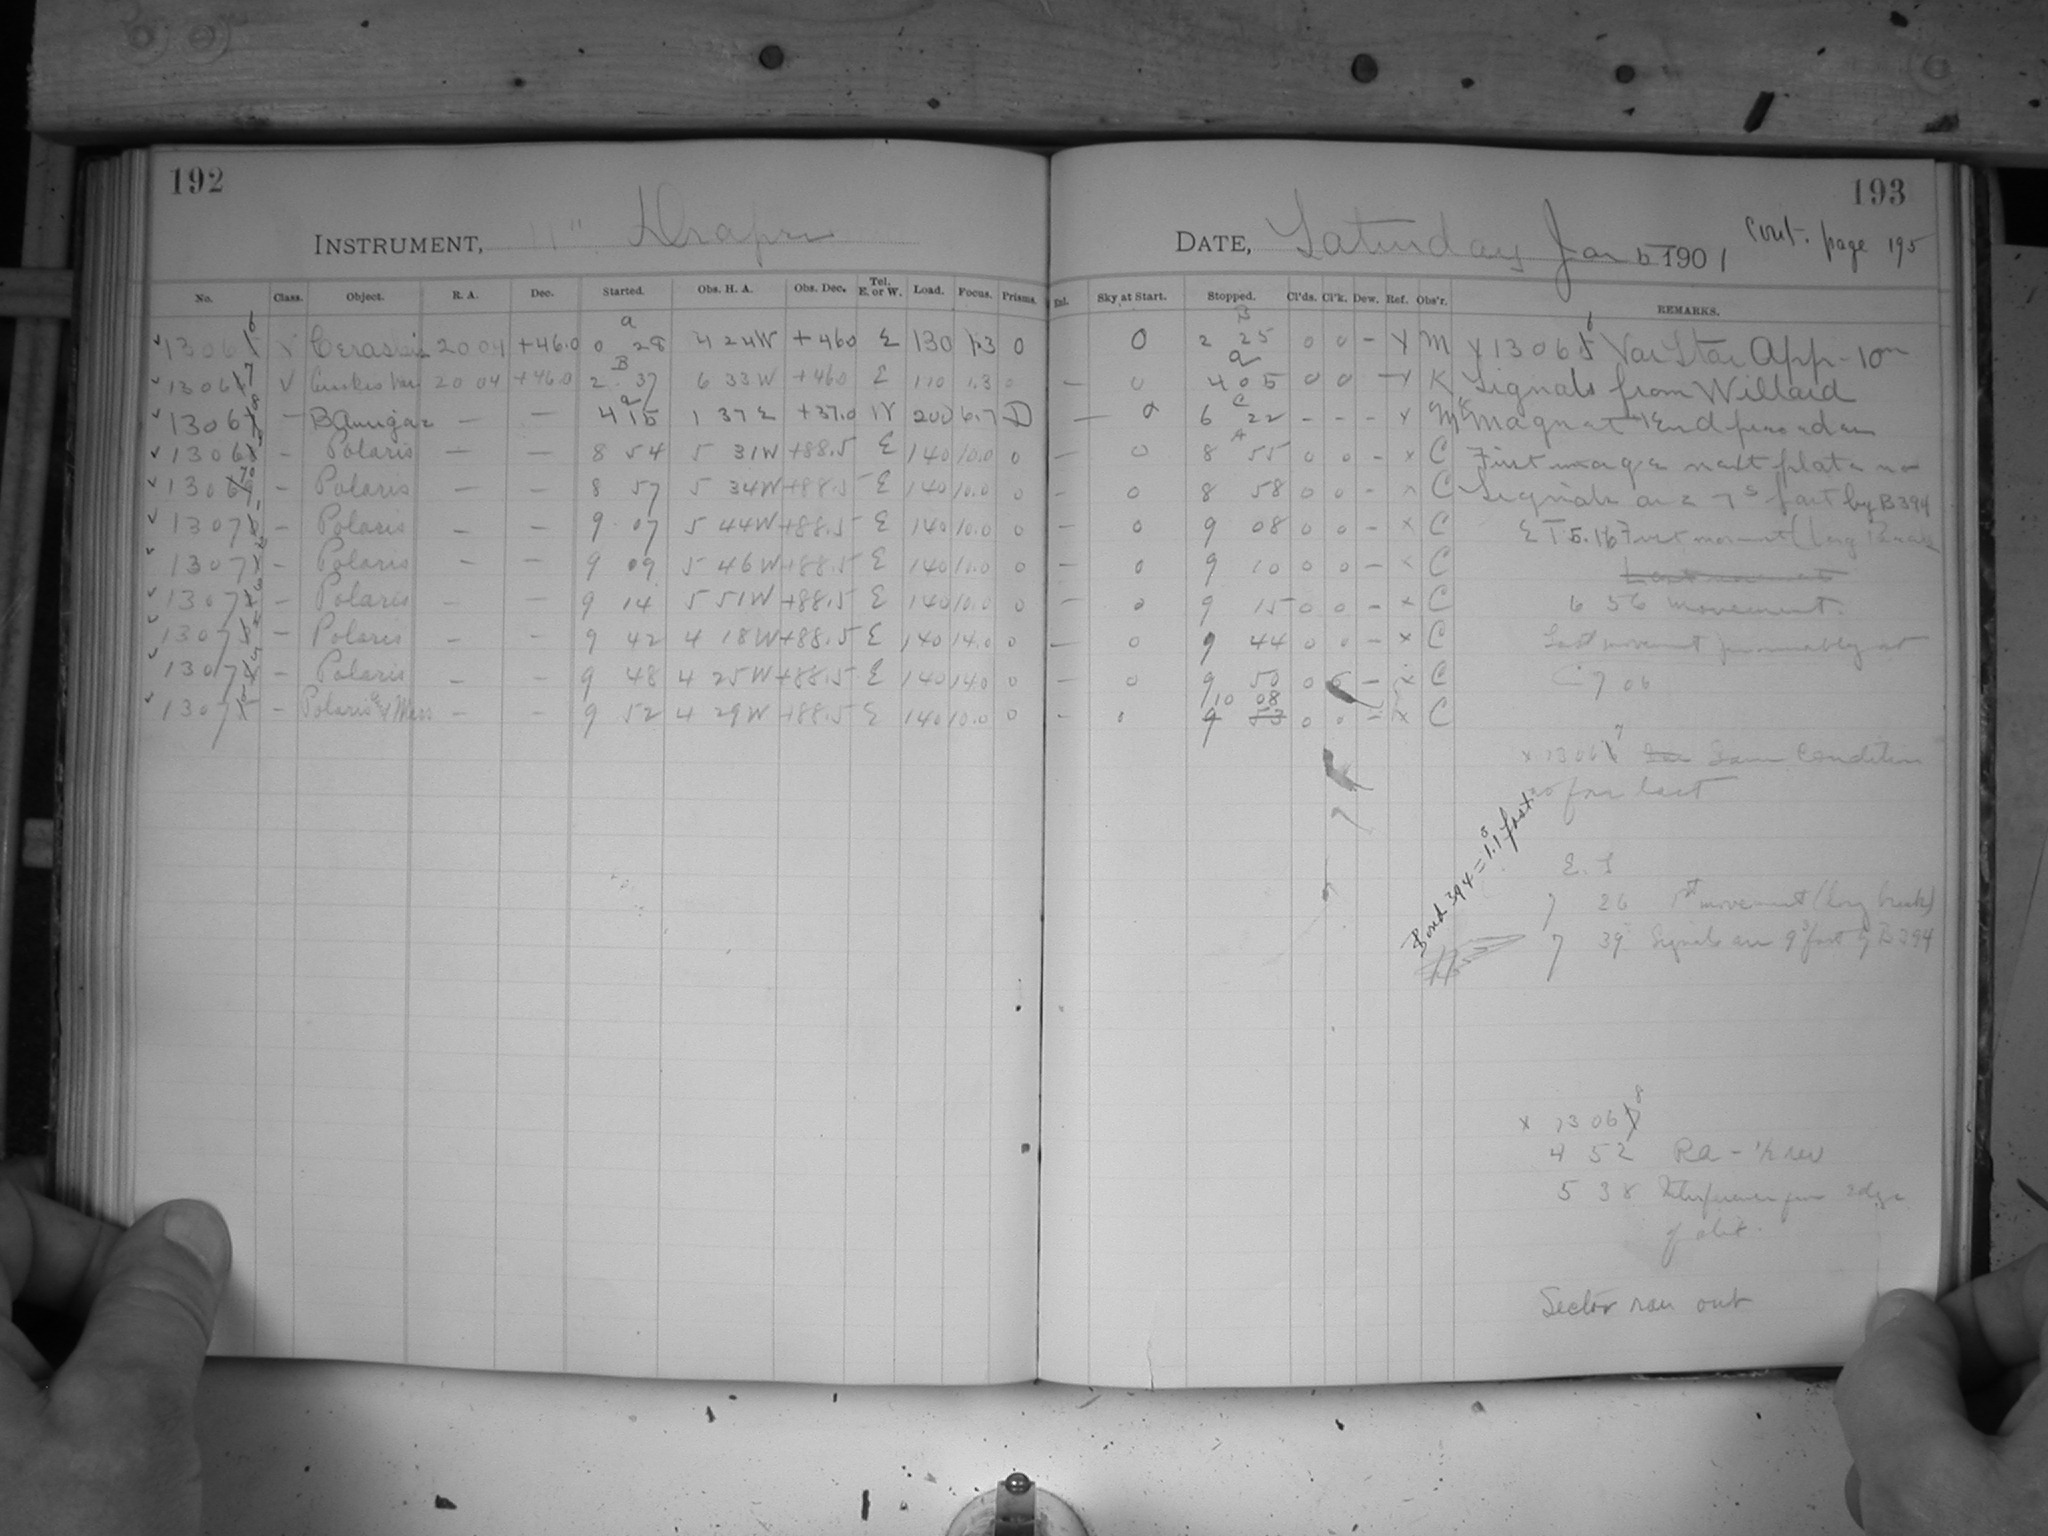 192
193
INSTRUMENT, 11" Draper
DATE, Saturday Jan 5 1901 Cont. page 195
No. Class. Object. R. A. Dec. Started. Obs. H. A. Obs. Dec. Tel. E. or W. Load. Focus. Prisms. Exl. Sky at Start. Stopped. Cl'ds. Cl'k. Dew. Ref. Obs'r. REMARKS.
a B
1306 Ceraskis 20 04 +46.0 0 28 4 24W +46.0 E 130 1.3 0 0 2 25 0 0 - x M x 1306 6 Var Star App - 10m
B a
1306 7 20 04 +46.0 2 37 6 33W +46.0 E 110 1.3 0 - 0 4 05 0 0 - K Signals from Willard
a C
1306 8 - B Aurigae - - 4 15 1 37 E +37.0 W 200 6.7 D - 6 22 - - - x Magnet
A
1306 - Polaris - - 8 54 5 31W +88.5 E 140 10.0 0 - 0 8 55 0 0 - x C First image next plate no
130 70 - Polaris - - 8 57 5 34W +88.5 E 140 10.0 0 - 0 8 58 0 0 - x C Signals are 7s fast by B394
1307 - Polaris - - 9 07 5 44W +88.5 E 140 10.0 0 - 0 9 08 0 0 - x C E T 5.16 First movement (long Break
1307 - Polaris - - 9 09 5 46W +88.5 E 140 10.0 0 - 0 9 10 0 0 - x C Last movement
1307 - Polaris - - 9 14 5 51W +88.5 E 140 10.0 0 - 0 9 15 0 0 - x C 6 56 movement.
1307 - Polaris - - 9 42 4 18W +88.5 E 140 14.0 0 - 0 9 44 0 0 - x C Last movement presumably at
1307 - Polaris - - 9 48 4 25W +88.5 E 140 14.0 0 - 0 9 50 0 0 - x C C 7 06
10 08
1307 - Polaris - - 9 52 4 29W +88.5 E 140 10.0 0 - 0 9 53 0 0 - x C
x 1306 7 Same Condition
as for last
Bond 394 = 1.1s fast
E. T
7 26 1st movement (long break)
7 39 Signals are 9s fast by B394
x 1306 8
4 52 RA - ½ rev
5 38 Interference from edge
of slit.
Sector ran out